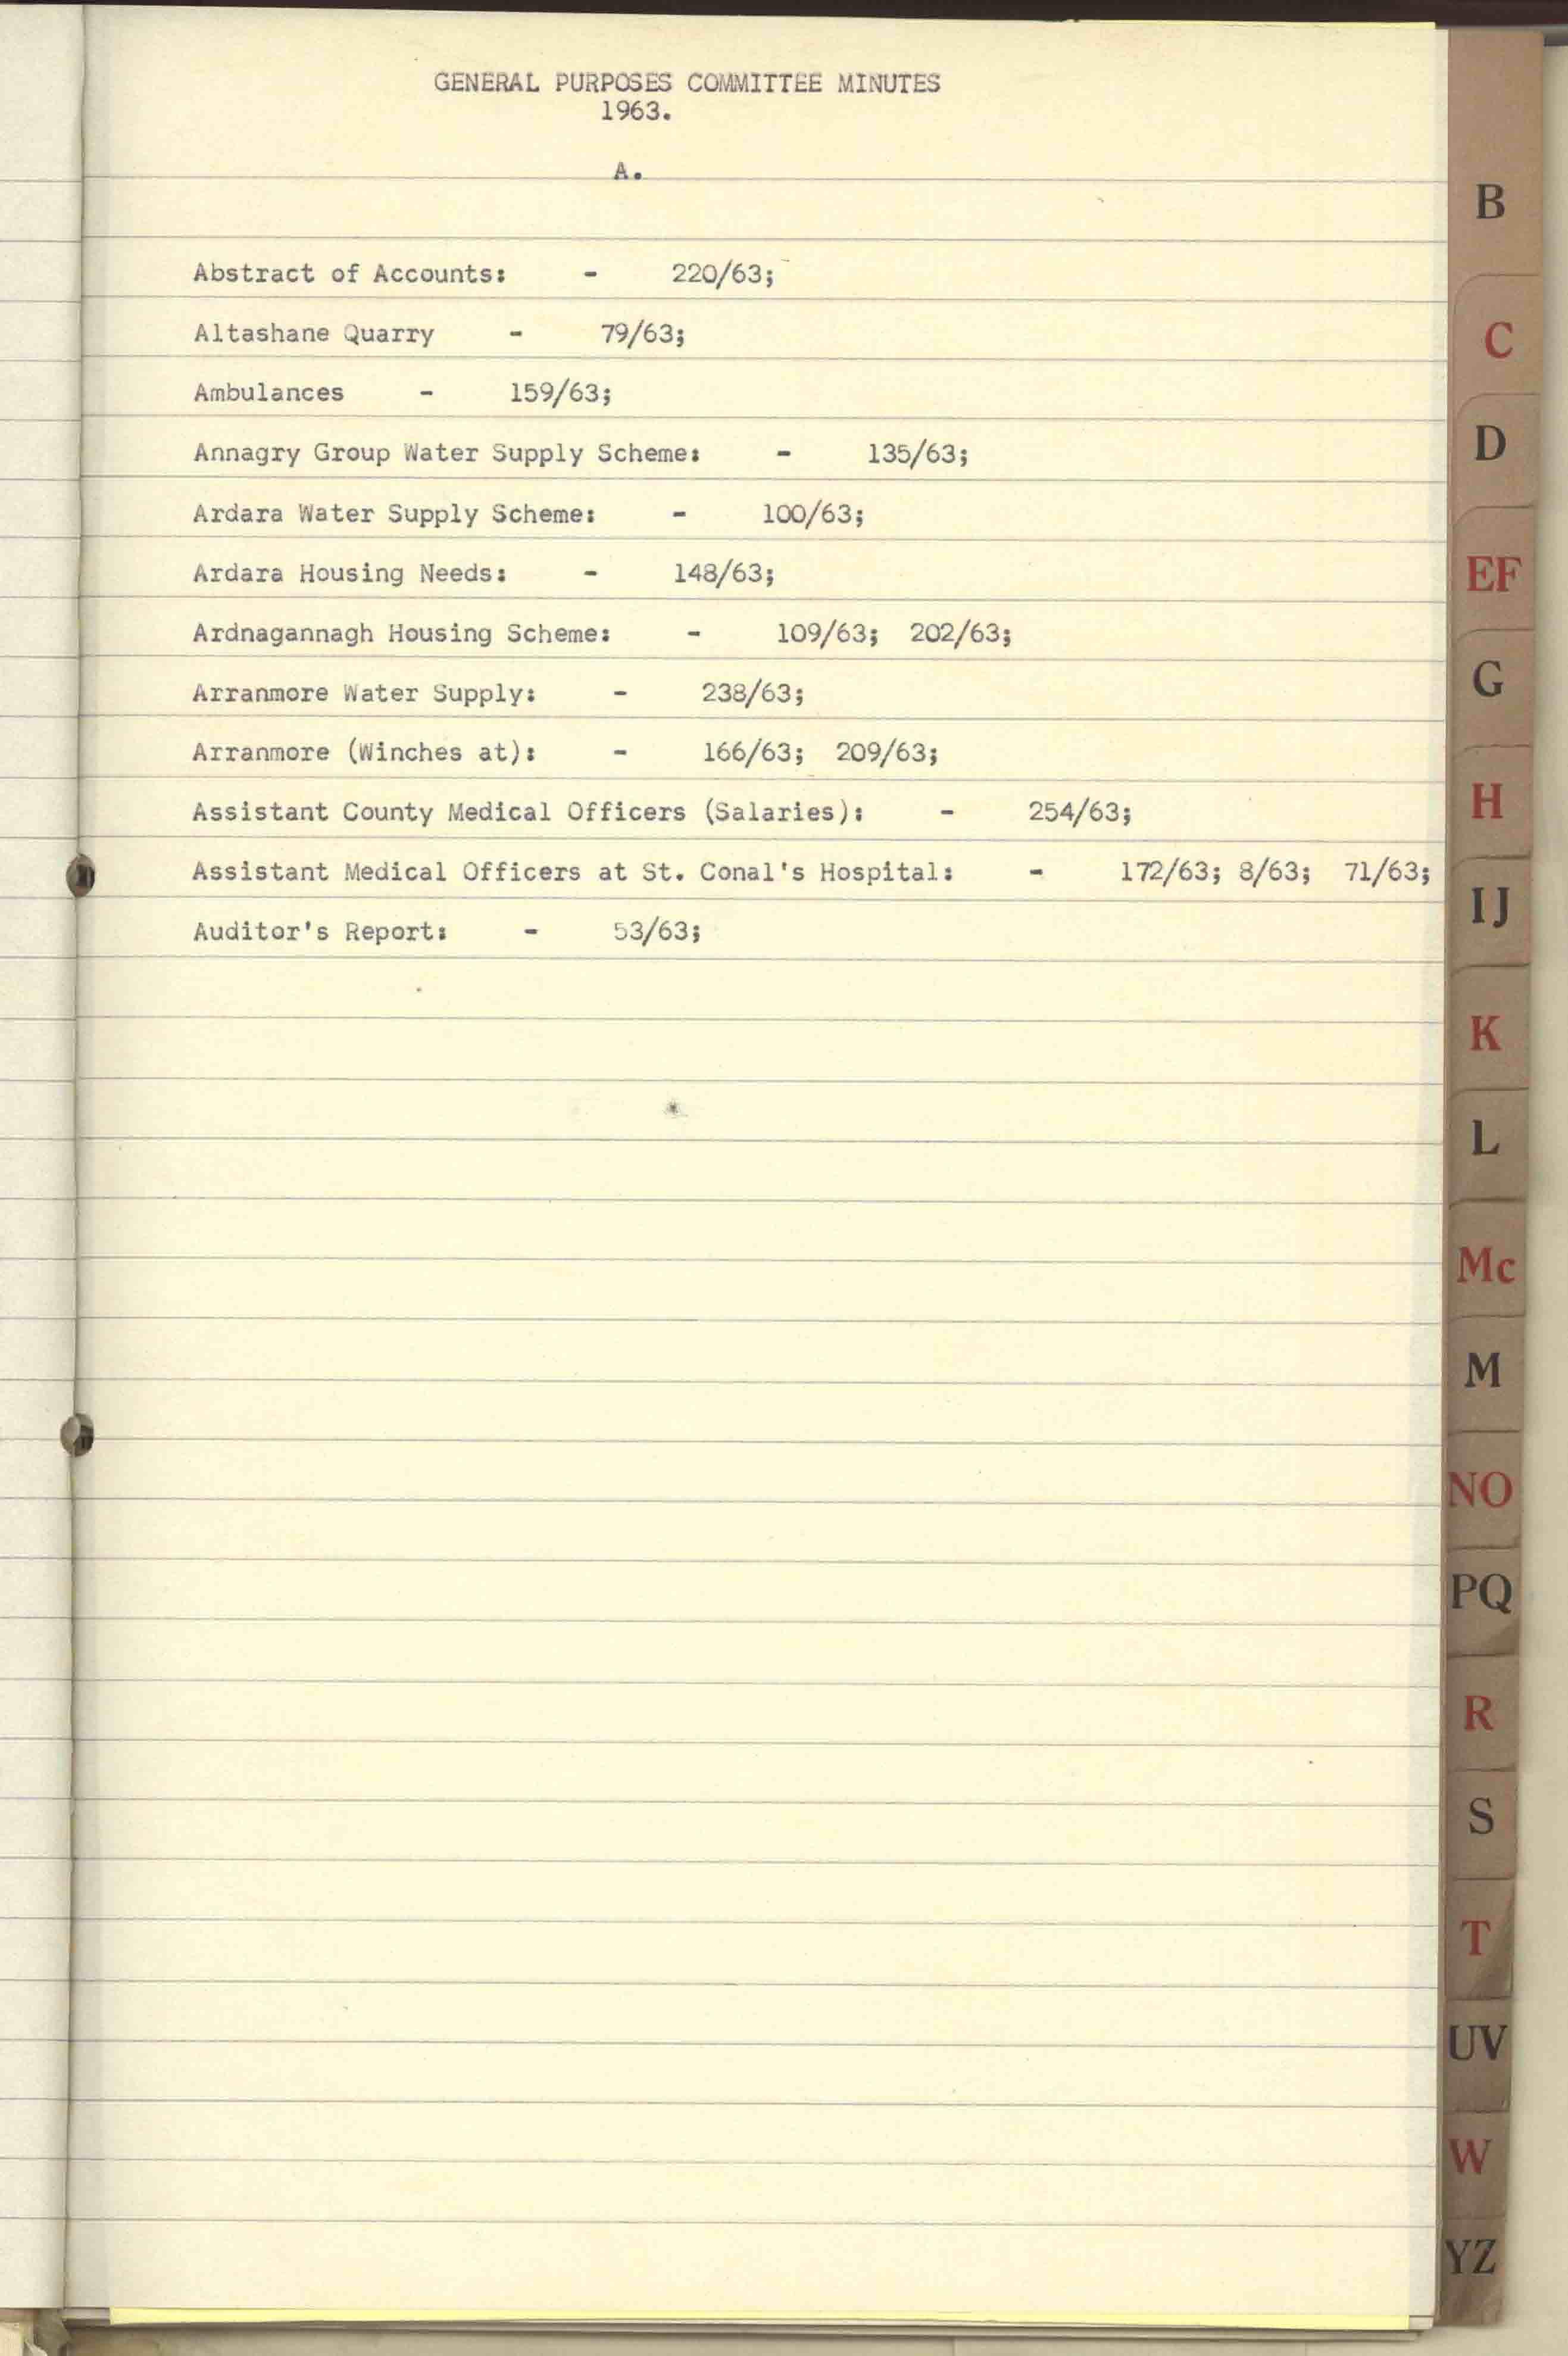 GENERAL PURPOSES COMMITTEE MINUTES
1963.
A.
Abstract of Accounts: - 220/63;
Altashane Quarry - 79/63;
Ambulances - 159/63;
Annagry Group Water Supply Scheme: - 135/63;
Ardara Water Supply Scheme: - 100/63;
Ardara Housing Needs: - 148/63;
Ardnagannagh Housing Scheme: - 109/63; 202/63;
Arranmore Water Supply: - 238/63;
Arranmore (Winches at): - 166/63; 209/63;
Assistant County Medical Officers (Salaries): - 254/63;
Assistant Medical Officers at St. Conal's Hospital: - 172/63; 8/63; 71/63;
Auditor's Report: - 53/63;
B
C
D
EF
G
H
IJ
K
L
Mc
M
NO
PQ
R
S
T
UV
W
YZ